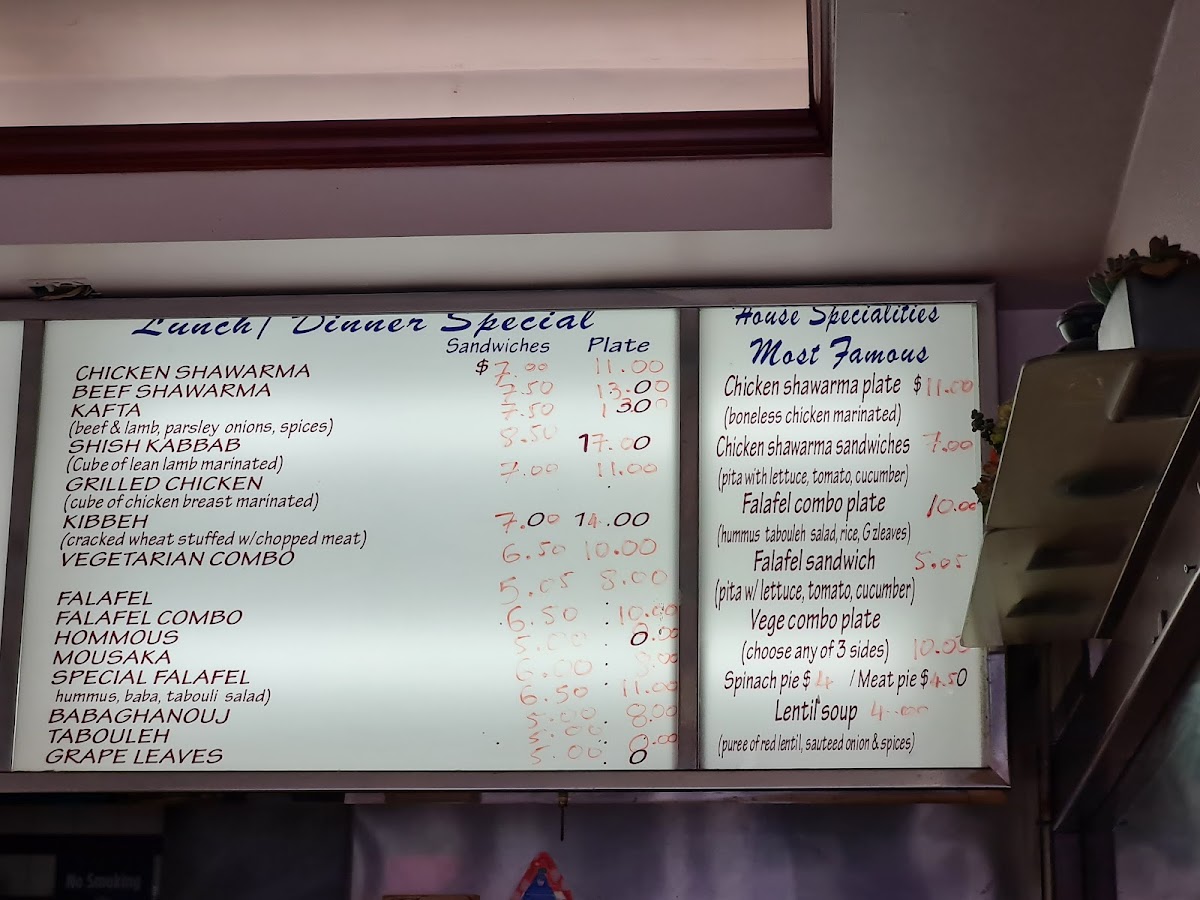 Lunch/ Dinner Special
Sandwiches Plate
CHICKEN SHAWARMA $7.00 11.00
BEEF SHAWARMA 7.50 13.00
KAFTA 7.50 13.00
(beef & lamb, parsley onions, spices)
SHISH KABBAB 8.50 17.00
(Cube of lean lamb marinated)
GRILLED CHICKEN 7.00 11.00
(cube of chicken breast marinated)
KIBBEH 7.00 14.00
(cracked wheat stuffed w/chopped meat)
VEGETARIAN COMBO 6.50 10.00
FALAFEL 5.05 8.00
FALAFEL COMBO 6.50 10.00
HOMMOUS 5.00
MOUSAKA 6.00
SPECIAL FALAFEL 6.50 11.00
hummus, baba, tabouli salad)
BABAGHANOUJ 5.00 8.00
TABOULEH 5.00
GRAPE LEAVES 5.00
House Specialities
Most Famous
Chicken shawarma plate $11.00
(boneless chicken marinated)
Chicken shawarma sandwiches 7.00
(pita with lettuce, tomato, cucumber)
Falafel combo plate 10.00
(hummus tabouleh salad, rice, G zleaves)
Falafel sandwich 5.05
(pita w/ lettuce, tomato, cucumber)
Vege combo plate
(choose any of 3 sides) 10.00
Spinach pie $ 4 / Meat pie $4.50
Lentil soup 4.00
(puree of red lentil, sauteed onion & spices)
No Smoking